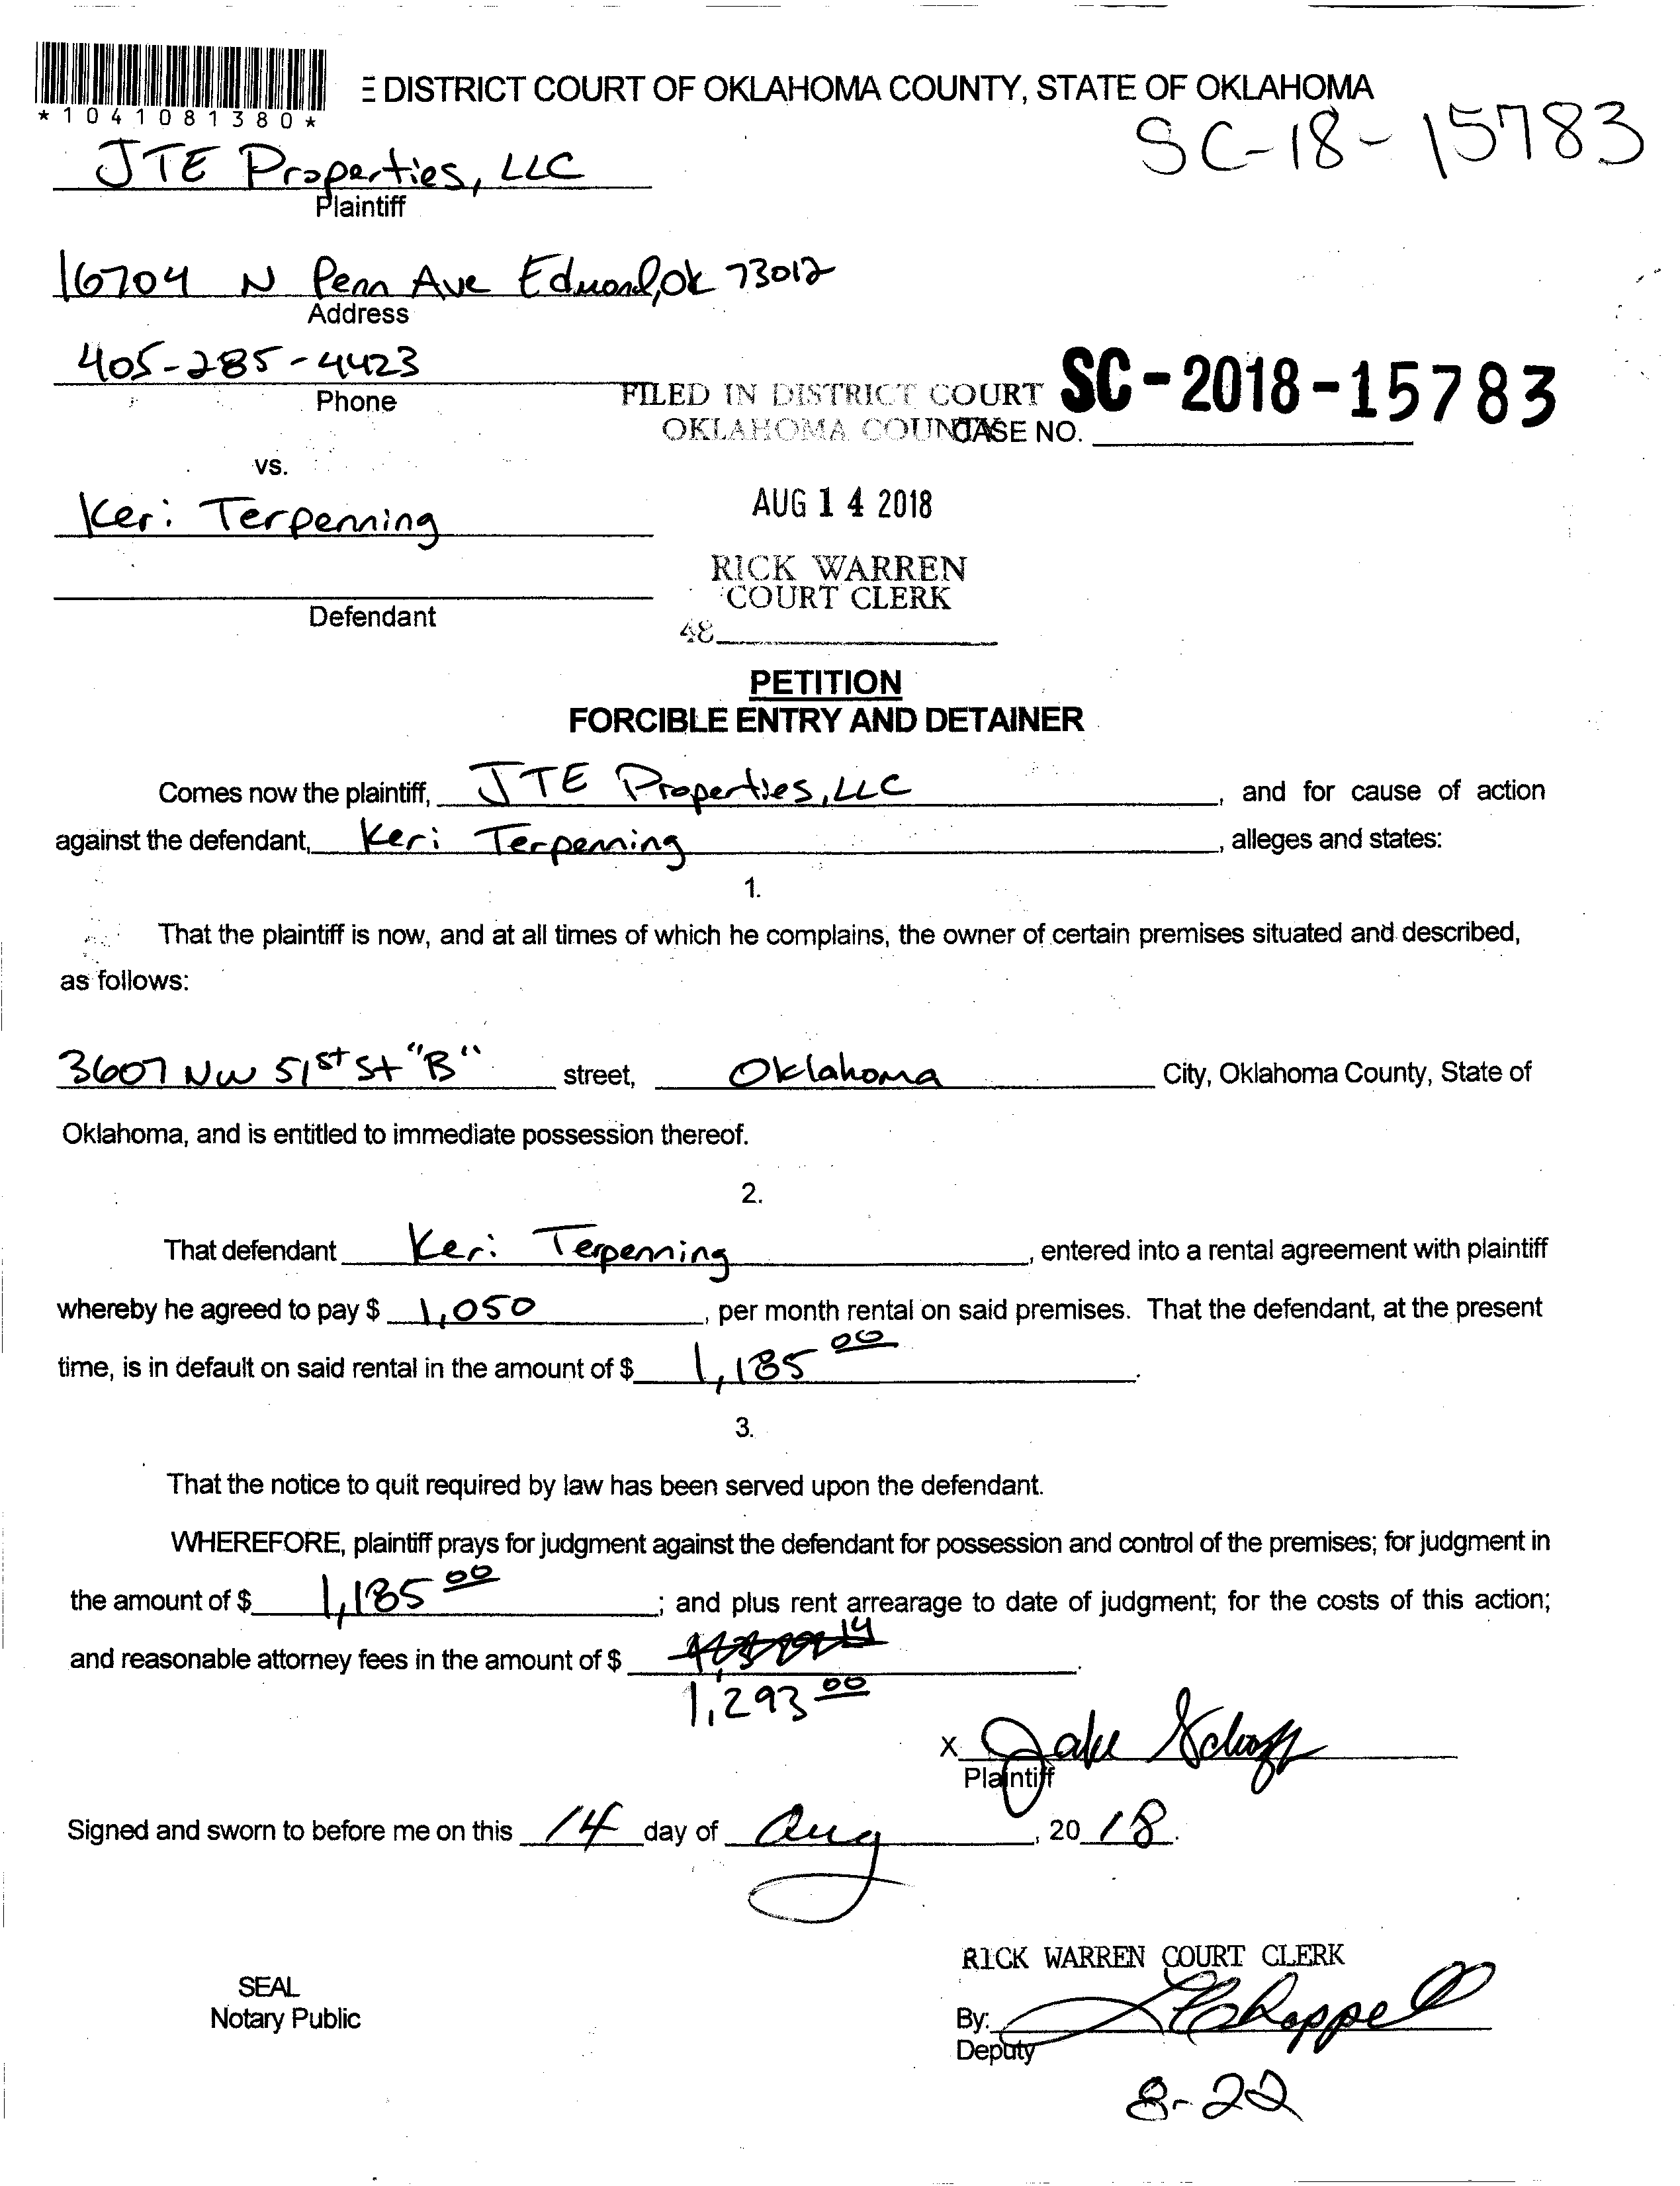 E DISTRICT COURT OF OKLAHOMA COUNTY, STATE OF OKLAHOMA
*1041081380*
SC-18-15783
JTE Properties, LLC
Plaintiff
16704 N Penn Ave Edmond, Ok 73012
Address
405-285-4423
Phone
FILED IN DISTRICT COURT
OKLAHOMA COUNTY
SC-2018-15783
CASE NO.
vs.
AUG 14 2018
Keri Terpenning
RICK WARREN
COURT CLERK
Defendant
48
PETITION
FORCIBLE ENTRY AND DETAINER
Comes now the plaintiff, JTE Properties, LLC, and for cause of action
against the defendant, Keri Terpenning, alleges and states:
1.
That the plaintiff is now, and at all times of which he complains, the owner of certain premises situated and described,
as follows:
3607 NW 51st St "B" street, Oklahoma City, Oklahoma County, State of
Oklahoma, and is entitled to immediate possession thereof.
2.
That defendant Keri Terpenning, entered into a rental agreement with plaintiff
whereby he agreed to pay $ 1,050, per month rental on said premises. That the defendant, at the present
time, is in default on said rental in the amount of $ 1,185 00.
3.
That the notice to quit required by law has been served upon the defendant.
WHEREFORE, plaintiff prays for judgment against the defendant for possession and control of the premises; for judgment in
the amount of $ 1,185 00; and plus rent arrearage to date of judgment; for the costs of this action;
and reasonable attorney fees in the amount of $ 14.
1,293 00
x Jake
Plaintiff
Signed and sworn to before me on this 14 day of Aug, 20 18.
RICK WARREN COURT CLERK
SEAL
Notary Public
By: Chappell
Deputy
8-22